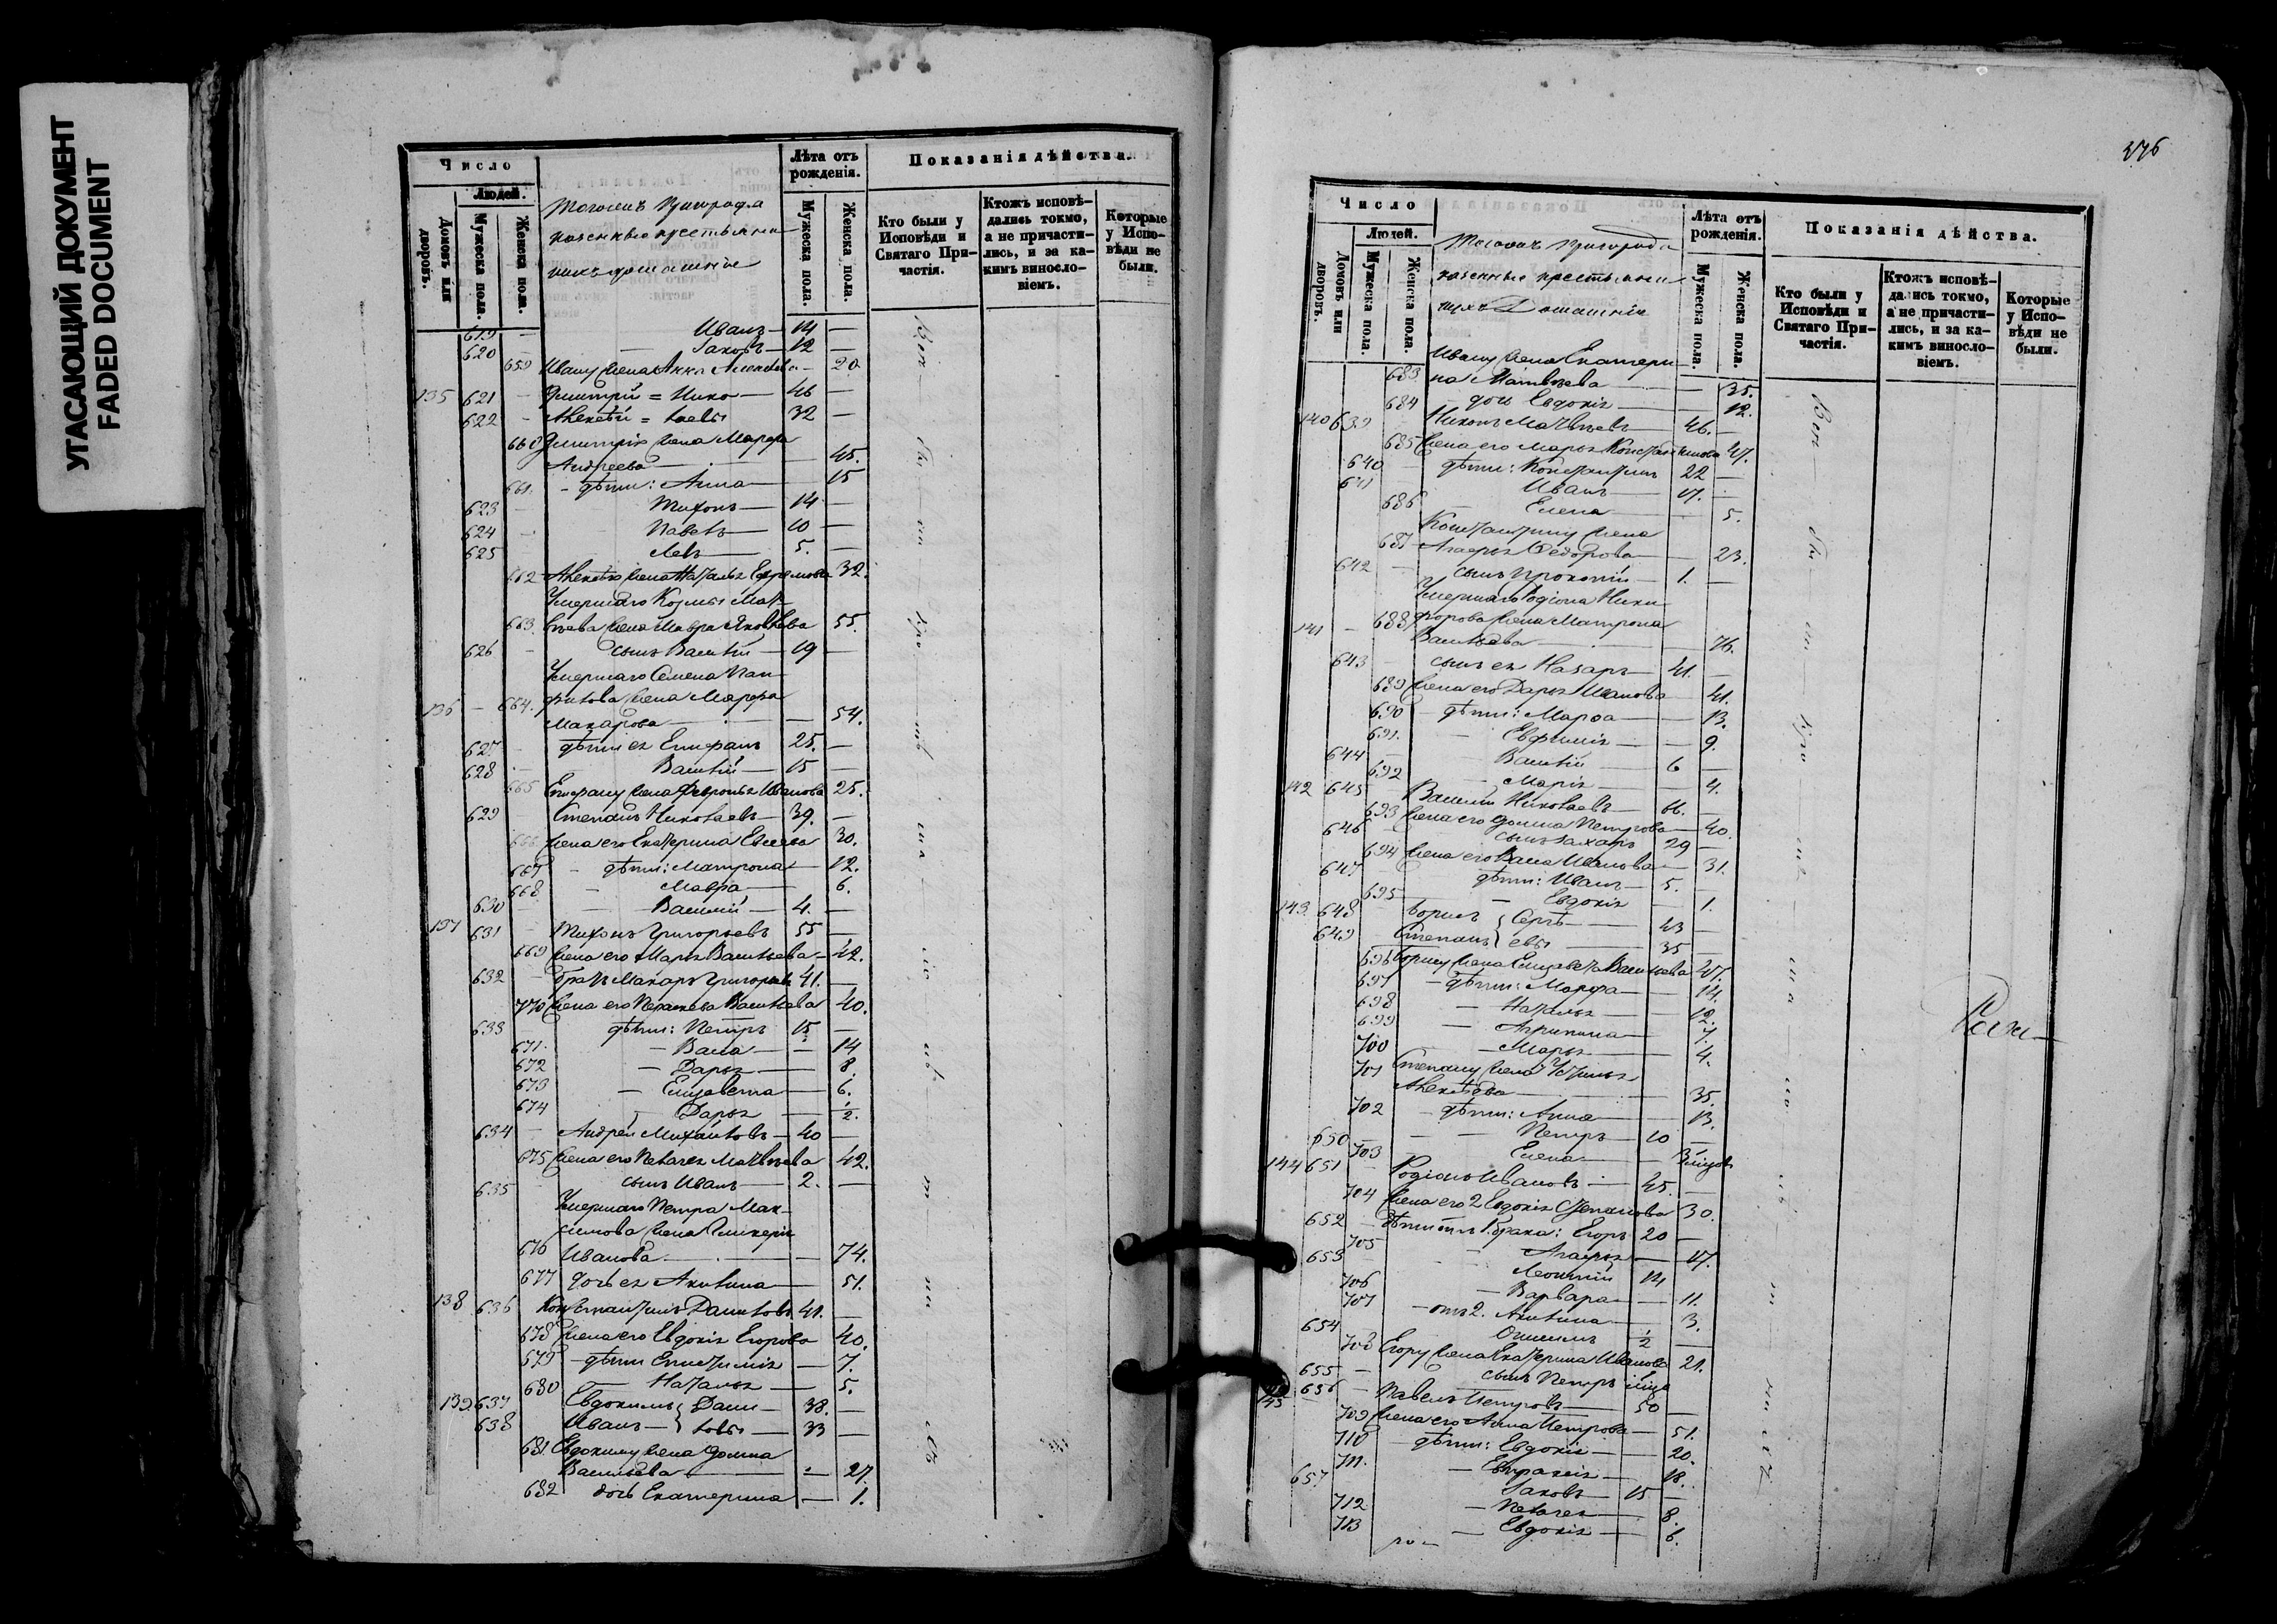 УГАСАЮЩИЙ ДОКУМЕНТ
FADED DOCUMENT
Число
Людей.
Домовъ или дворовъ.
Мужеска пола.
Женска пола.
Тогожъ Пригорода
казенные крестьяне
ихъ домашніе
Лѣта отъ рожденія.
Мужеска пола.
Женска пола.
Показанія дѣйства.
Кто были у Исповѣди и Святаго Причастія.
Ктожъ исповѣдались токмо, а не причастились, и за какимъ винословіемъ.
Которые у Исповѣди не были.
619 — Иванъ — 14 —
620 — Іаковъ — 12 —
659 Ивану жена Анна Алексѣева — 20
135 621 — Димитрій = Нико — 46 —
622 — Алексѣй = лаевы 32 —
660 Димитрія жена Марѳа
Андреева — 45.
661. — дѣти: Анна — 15
623 — Тихонъ — 14 —
624 — Павелъ — 10 —
625 Левъ — 5. —
662 Алексѣя жена Наталья Ефремова 32.
Умершаго Козмы Мат-
663. вѣева жена Мавра Яковлева 55.
626 — сынъ Василій — 19 —
Умершаго Семена Пан-
136 — 664. филова жена Марѳа
Макарова — — 54.
627 — дѣти ея Епифанъ 25. —
628 — Василій — 15 —
665 Епифану жена Февронья Иванова 25.
629 — Степанъ Николаевъ — 39. —
666 жена его Екатерина Евсеева 30.
667 — дѣти: Матрона — 12.
668 — Мавра — 6.
630 — Василій — 4. —
137 631 — Тихонъ Григорьевъ 55 —
669 жена его Марья Васильева — 42.
632 — братъ Макаръ Григорьевъ 41. —
770 жена его Пелагея Васильева 40.
633 — дѣти: Петръ 15 —
671. — Васа — — 14
672 — Дарья — 8.
673 — Елизавета — 6.
674 — Дарья — 1/2.
634 — Андрей Михайловъ — 40 —
675 жена его Пелагея Матвѣева 42.
635 — сынъ Иванъ — 2. —
Умершаго Петра Мак-
симова жена Гликерія
676 Иванова — — 74.
677 дочь ея Акилина — 51.
138 636 Константинъ Даниловъ 41. —
678 жена его Евдокія Егорова 40.
679 — дѣти Епистимія — 7.
680 — Наталья — 5.
139. 637 Евдокимъ } Дани — 38. —
638 Иванъ — } ловы — 33 —
681. Евдокиму жена Домна
Васильева — — 27.
682 дочь Екатерина — 1.
376
Число
Людей.
Домовъ или дворовъ.
Мужеска пола.
Женска пола.
Тогожъ Пригорода
казенные крестьяне
ихъ Домашніе
Лѣта отъ рожденія.
Мужеска пола.
Женска пола.
Показанія дѣйства.
Кто были у Исповѣди и Святаго Причастія.
Ктожъ исповѣдались токмо, а не причастились, и за какимъ винословіемъ.
Которые у Исповѣди не были.
Ивану жена Екатери-
683 на Матвѣева — — 35.
684 — дочь Евдокія — 12.
140 639 Никонъ Матвѣевъ — 46. —
685 жена его Марья Константинова 47.
640 — дѣти: Константинъ 22 —
641 Иванъ — 17. —
686 — Елена — 5.
Константину жена
687 Агафья Ѳедорова — 23.
642 — сынъ Прокопій — 1. —
Умершаго Родіона Ники-
141 — 688 форова жена Матрона
Васильева — — 76.
643 — сынъ ея Назаръ — 41. —
689 жена его Дарья Иванова — 41.
690 — дѣти: Марѳа — — 13.
691. — Евфимія — — 9.
644 — Василій — 6 —
692 — Марія — — 4.
142 645 — Василій Николаевъ — 66. —
693 жена его Домна Петрова — 40.
646 — сынъ Захаръ 29 —
694 жена его Васа Иванова — 31.
647 дѣти: Иванъ — 5. —
695 — Евдокія — 1.
143. 648 — Борисъ } Сергѣ — 43 —
649 — Степанъ } евы — 35 —
696 Борису жена Елизавета Васильева 47.
697 — дѣти: Марѳа — 14.
698 — Наталья — 12.
699 — Агрипина — 7.
700 — Марья — 4.
701 Степану жена Устинья
Алексѣева — — 35.
702 — дѣти: Анна — 13.
650 — Петръ — 10 —
703 — Елена —
144 651 — Родіонъ Ивановъ — 45. —
704 жена его 2 Евдокія Степанова 30.
652 — дѣти отъ 1. брака: Егоръ 20 —
705 — Агафья — 17.
653 — Леонтій 14
706 — Варвара — 11.
707 — отъ 2. Акилина — 3.
654 Онисимъ 1/2 —
708 Егору жена Екатерина Иванова 21.
655 — сынъ Петръ
145 656 — Павелъ Петровъ — 50 —
709 жена его Анна Петрова — 51.
710 — дѣти: Евдокія — 20.
711. — Евпраксія — 18.
657 — Іаковъ — 15 —
712 — Пелагея — 8.
713 — Евдокія — 6.